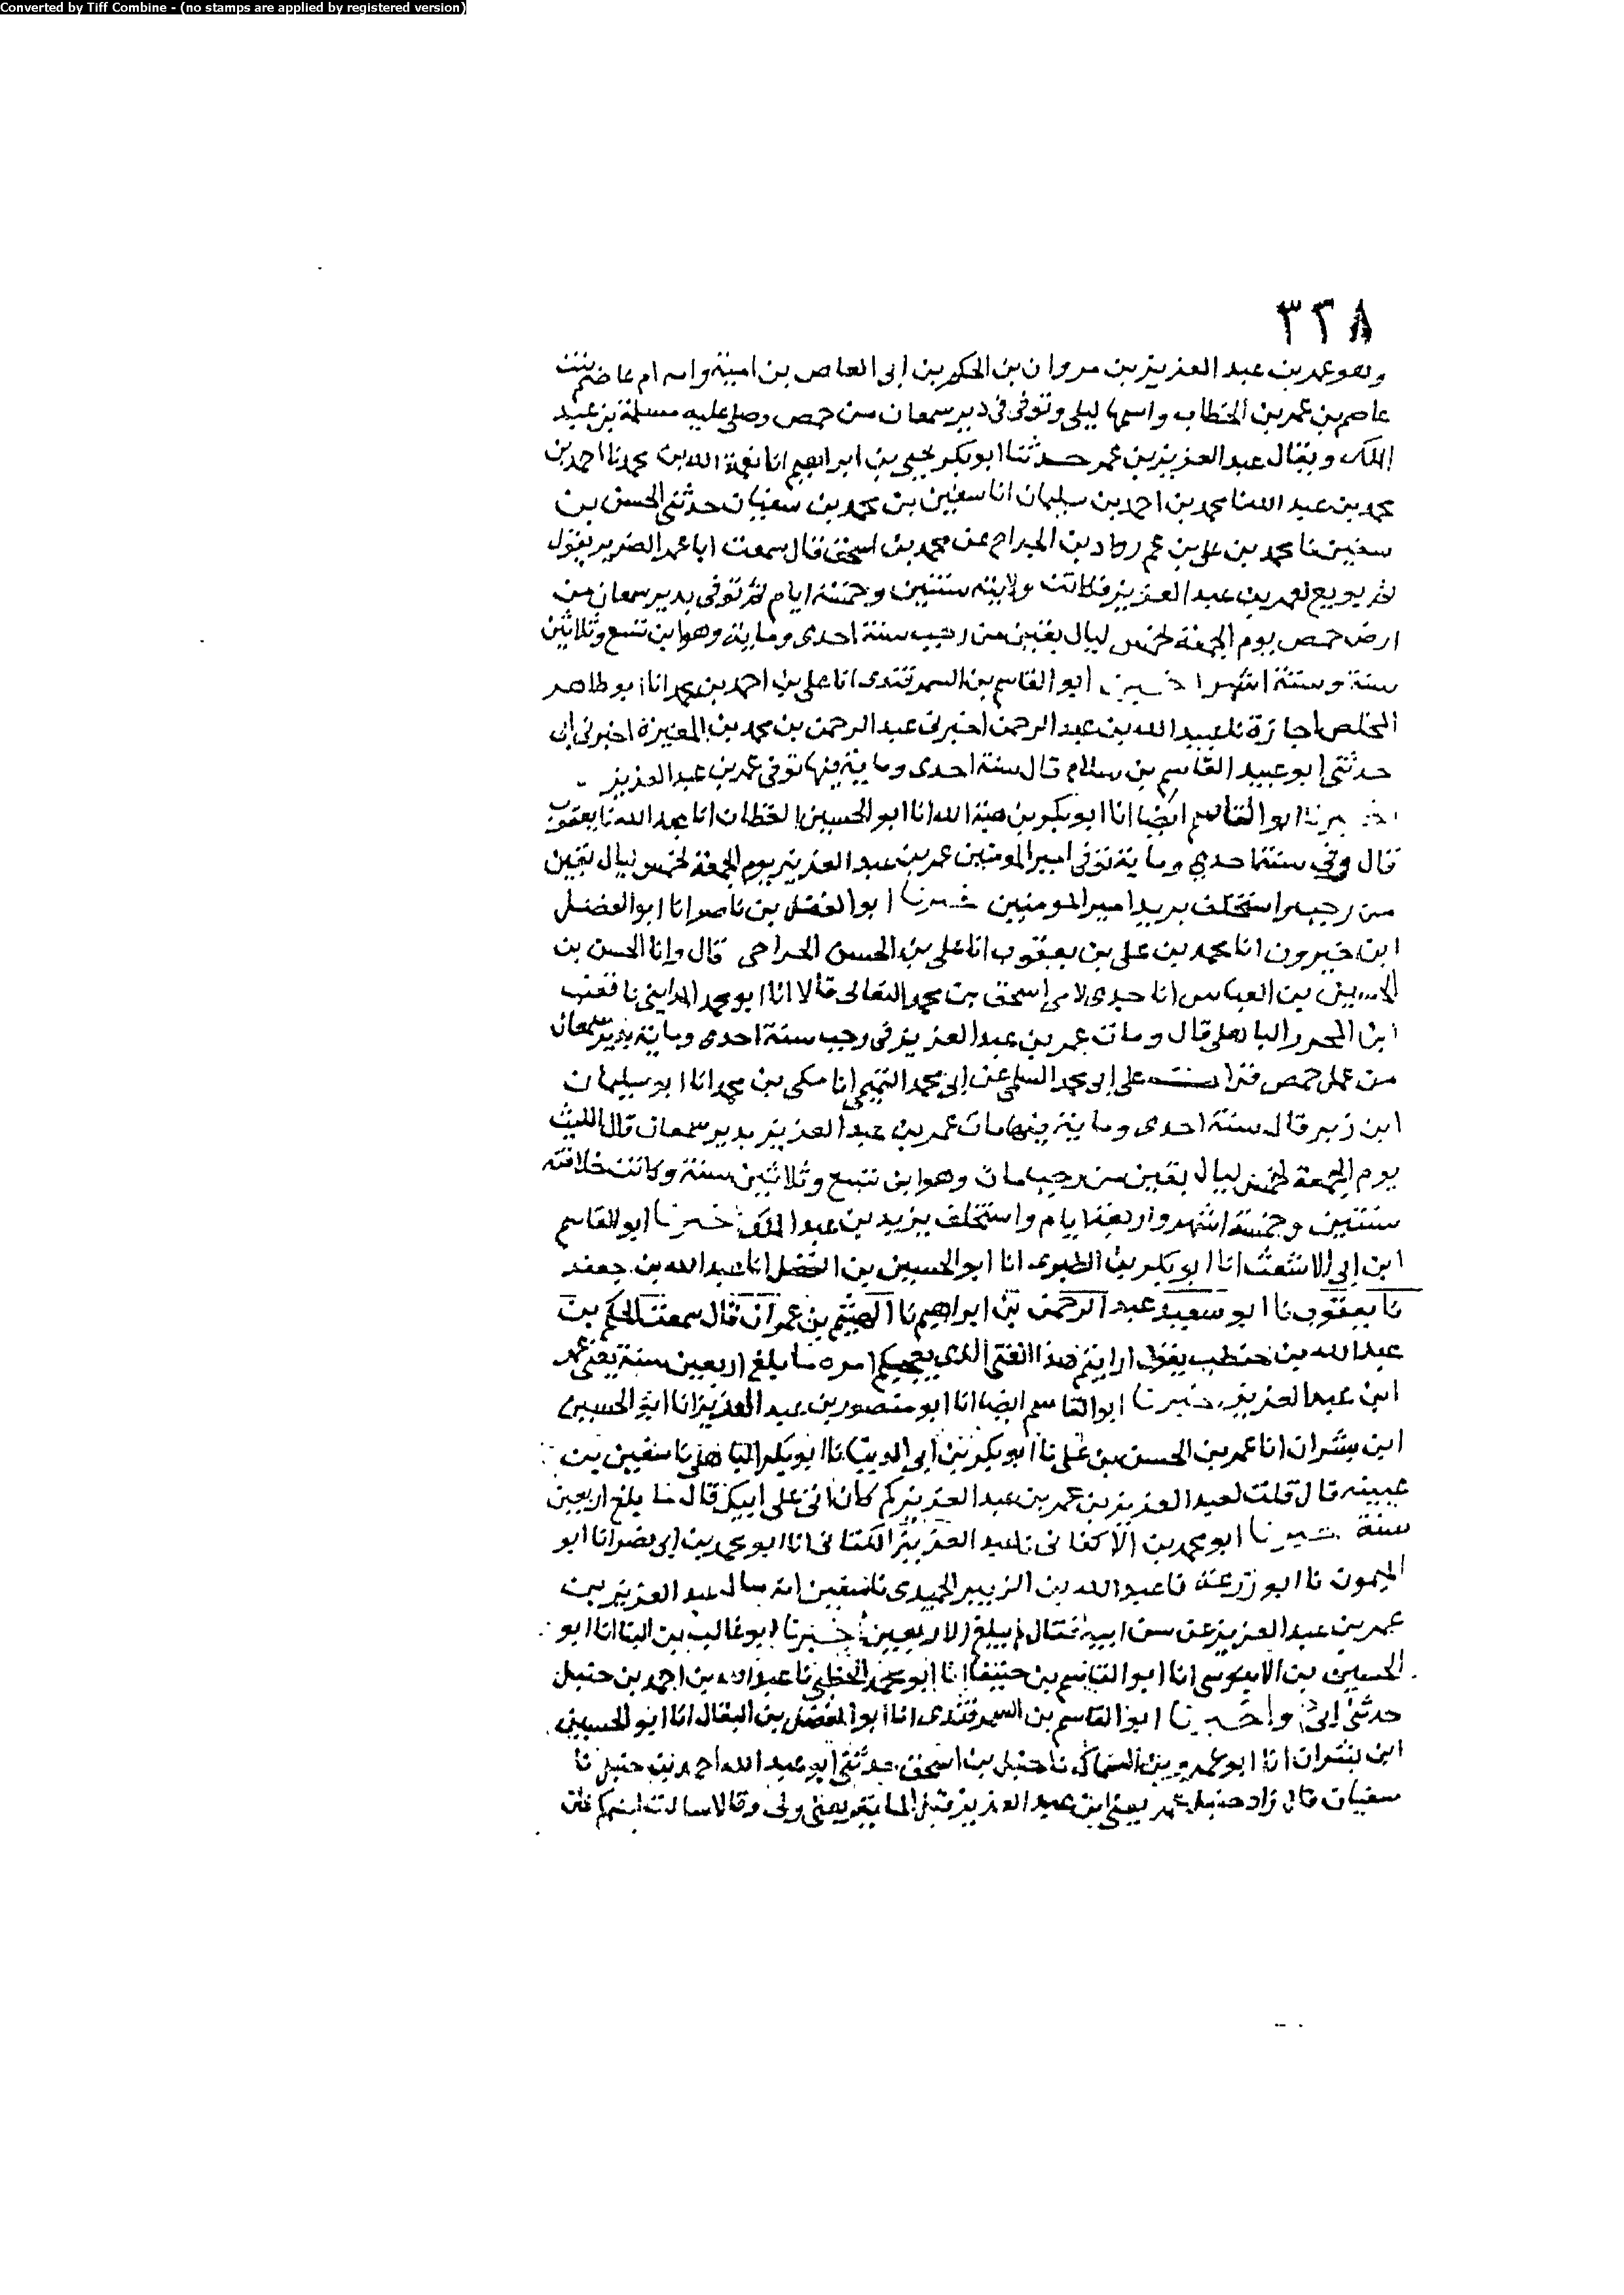 Converted by Tiff Combine - (no stamps are applied by registered version)
٣٢٨
وهو عمر بن عبد العزيز بن مروان بن الحكم بن ابى العاص بن امية وامه ام عاصم بنت
عاصم بن عمر بن الخطاب واسمها ليلى وتوفى فى دير سمعان من حمص وصلى عليه مسلمة بن عبد
الملك ويقال عبد العزيز بن عمر حدثنا ابو بكر يحيى بن ابراهيم انا نعمة الله بن محمد نا احمد بن
محمد بن عبد الله نا محمد بن احمد بن سليمان انا سفين بن محمد بن سفيان حدثنى الحسن بن
سفين نا محمد بن على بن عم رواد بن الجراح عن محمد بن اسحق قال سمعت ابا عمر الضرير يقول
ثم بويع لعمر بن عبد العزيز فكانت ولايته سنتين وخمسة ايام ثم توفى بدير سمعان من
ارض حمص يوم الجمعة لخمس ليال بقين من رجب سنة احدى وماية وهو ابن تسع وثلاثين
سنة وستة اشهر ابو القاسم بن السمرقندى انا على بن احمد بن محمد انا ابو طاهر
المخلص اجازة نا عبيد الله بن عبد الرحمن اخبرنى عبد الرحمن بن محمد بن المغيرة اخبرنى ابى
حدثنى ابو عبيد القاسم بن سلام قال سنة احدى وماية فيها توفى عمر بن عبد العزيز
اخبرنا ابو القاسم ايضا انا ابو بكر بن هبة الله انا ابو الحسين القطان انا عبد الله نا يعقوب
قال وفى سنة احدى وماية توفى امير المومنين عمر بن عبد العزيز يوم الجمعة لخمس ليال بقين
من رجب واستخلف يزيد امير المومنين خبرنا ابو الفضل بن ناصر انا ابو الفضل
ابن خيرون انا محمد بن على بن يعقوب انا على بن الحسن الجراحى قال وانا الحسن بن
الحسين بن العباس انا جدى لامى اسحق بن محمد النعالى قالا انا ابو محمد المداينى نا قعنب
ابن المحرر الباهلى قال ومات عمر بن عبد العزيز فى رجب سنة احدى وماية بدير سمعان
من عمل حمص قرات على ابى محمد السلمى عن ابى محمد التميمى انا مكى بن محمد انا ابو سليمان
ابن زبر قال سنة احدى وماية فيها مات عمر بن عبد العزيز بدير سمعان قال الليث
يوم الجمعة لخمس ليال بقين من رجب مات وهو ابن تسع وثلاثين سنة وكانت خلافته
سنتين وخمسة اشهر واربعة ايام واستخلف يزيد بن عبد الملك خبرنا ابو القاسم
ابن ابى الاشعث انا ابو بكر بن الطبرى انا ابو الحسين بن الفضل انا عبد الله بن جعفر
نا يعقوب نا ابو سعيد عبد الرحمن بن ابراهيم نا الهيثم بن عمران قال سمعت الحكم بن
عبد الله بن حنطب يقول ارايتم هذا الفتى الذى يعجبكم امره ما بلغ اربعين سنة يعنى عمر
ابن عبد العزيز خبرنا ابو القاسم ايضا انا ابو منصور بن عبد العزيز انا ابو الحسين
ابن بشران انا عمر بن الحسن بن على نا ابو بكر بن ابى الدنيا نا ابو بكر الباهلى نا سفين بن
عيينه قال قلت لعبد العزيز بن عمر بن عبد العزيز كم كان اتى على ابيك قال ما بلغ اربعين
سنة خبرنا ابو محمد بن الاكفانى نا عبد العزيز الكتانى انا ابو محمد بن ابى نصر انا ابو
الميمون نا ابو زرعة نا عبد الله بن الزبير الحميدى نا سفين انه سال عبد العزيز بن
عمر بن عبد العزيز عن سن ابيه فقال لم يبلغ الاربعين خبرنا ابو غالب بن البنا انا ابو
الحسين بن الابنوسى انا ابو القاسم بن حنيفا انا ابو محمد الخطبى نا عبد الله بن احمد بن حنبل
حدثنى ابى واخبرنا ابو القاسم بن السمرقندى انا ابو الفضل بن البقال انا ابو الحسين
ابن بشران انا ابو عمرو بن السماك نا حنبل بن اسحق حدثنى ابو عبد الله احمد بن حنبل نا
سفيان قال زاد حنبل عمر يعنى ابن عبد العزيز قبل الماية يعنى ولى وقالا سالت ابنه كم